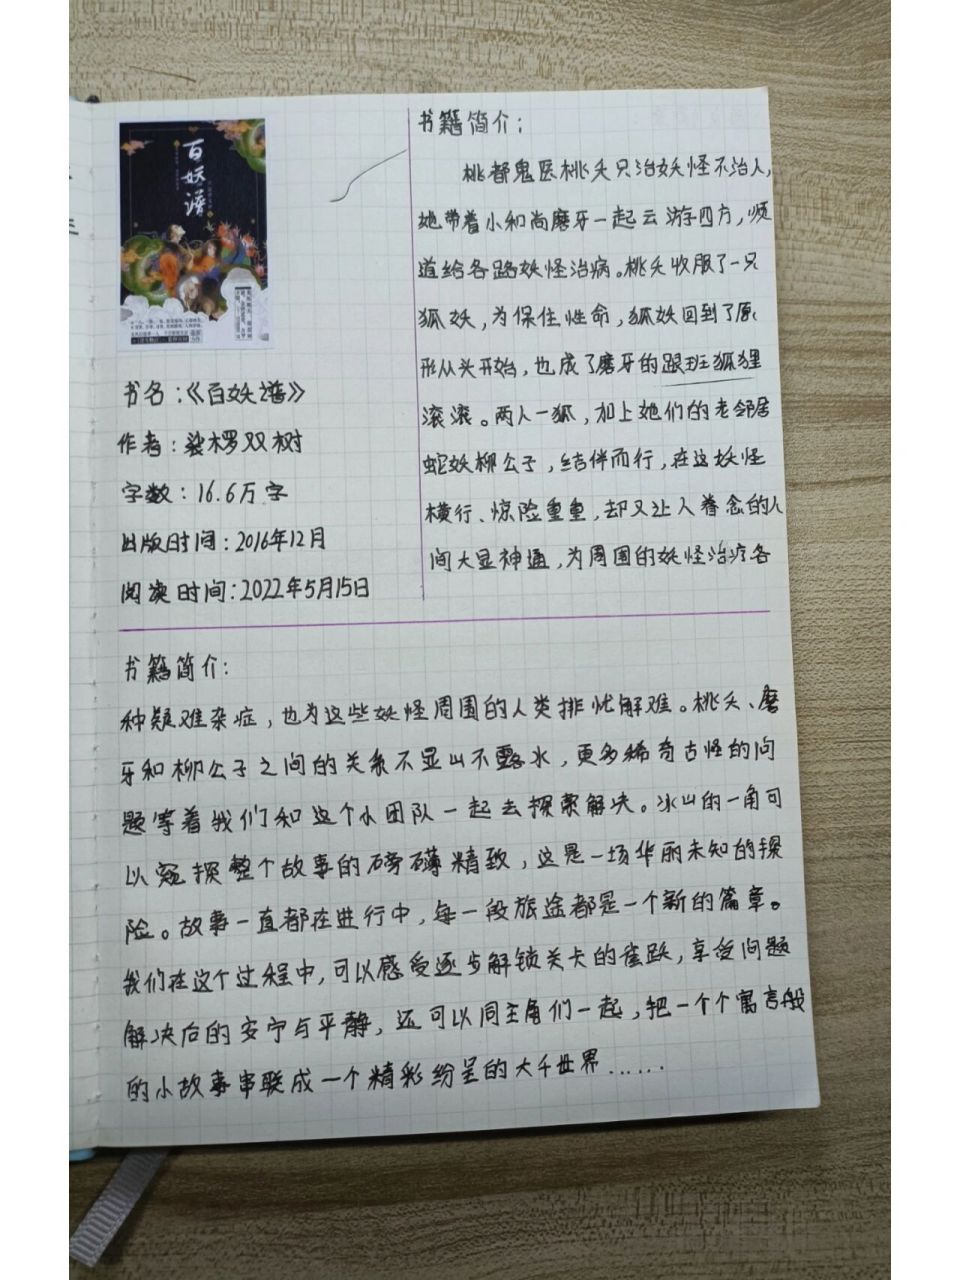 百妖谱
书名：《百妖谱》
作者：裟椤双树
字数：16.6万字
出版时间：2016年12月
阅读时间：2022年5月15日
书籍简介：
桃都鬼医桃夭只治妖怪不治人，
她带着小和尚磨牙一起云游四方，顺
道给各路妖怪治病。桃夭收服了一只
狐妖，为保住性命，狐妖回到了原
形从头开始，也成了磨牙的跟班狐狸
滚滚。两人一狐，加上她们的老邻居
蛇妖柳公子，结伴而行，在这妖怪
横行、惊险重重，却又让人眷念的人
间大显神通，为周围的妖怪治疗各
书籍简介：
种疑难杂症，也为这些妖怪周围的人类排忧解难。桃夭、磨
牙和柳公子之间的关系不显山不露水，更多稀奇古怪的问
题等着我们和这个小团队一起去探索解决。冰山的一角可
以窥探整个故事的磅礴精致，这是一场华丽未知的探
险。故事一直都在进行中，每一段旅途都是一个新的篇章。
我们在这个过程中，可以感受逐步解锁关卡的雀跃，享受问题
解决后的安宁与平静，还可以同主角们一起，把一个个寓言般
的小故事串联成一个精彩纷呈的大千世界……